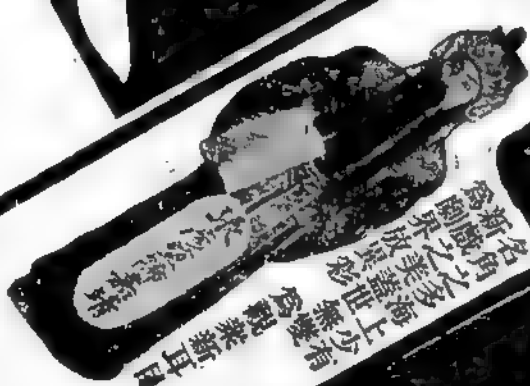 名角之多海上少有
新戲之美蓋世無雙
爲劇界放異彩
爲觀衆新耳目